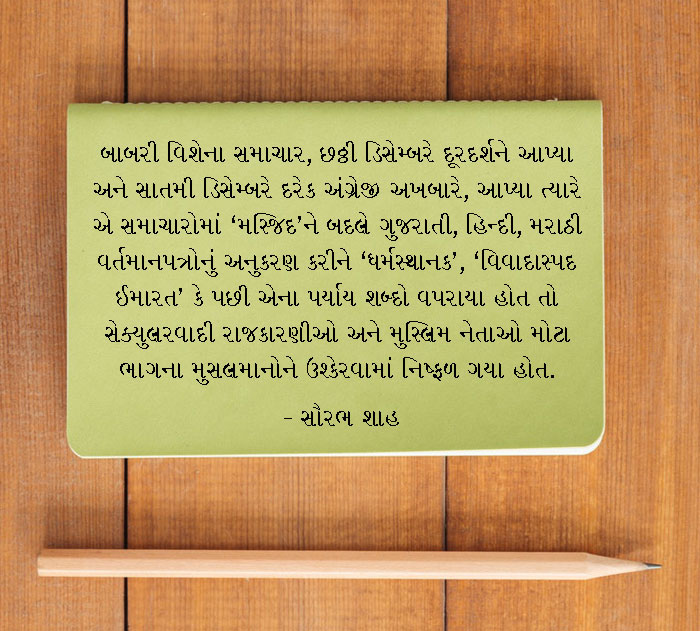 બાબરી વિશેના સમાચાર, છઠ્ઠી ડિસેમ્બરે દૂરદર્શને આપ્યા
અને સાતમી ડિસેમ્બરે દરેક અંગ્રેજી અખબારે, આપ્યા ત્યારે
એ સમાચારોમાં ‘મસ્જિદ’ને બદલે ગુજરાતી, હિન્દી, મરાઠી
વર્તમાનપત્રોનું અનુકરણ કરીને ‘ધર્મસ્થાનક’, ‘વિવાદાસ્પદ
ઈમારત’ કે પછી એના પર્યાય શબ્દો વપરાયા હોત તો
સેક્યુલરવાદી રાજકારણીઓ અને મુસ્લિમ નેતાઓ મોટા
ભાગના મુસલમાનોને ઉશ્કેરવામાં નિષ્ફળ ગયા હોત.
- સૌરભ શાહ